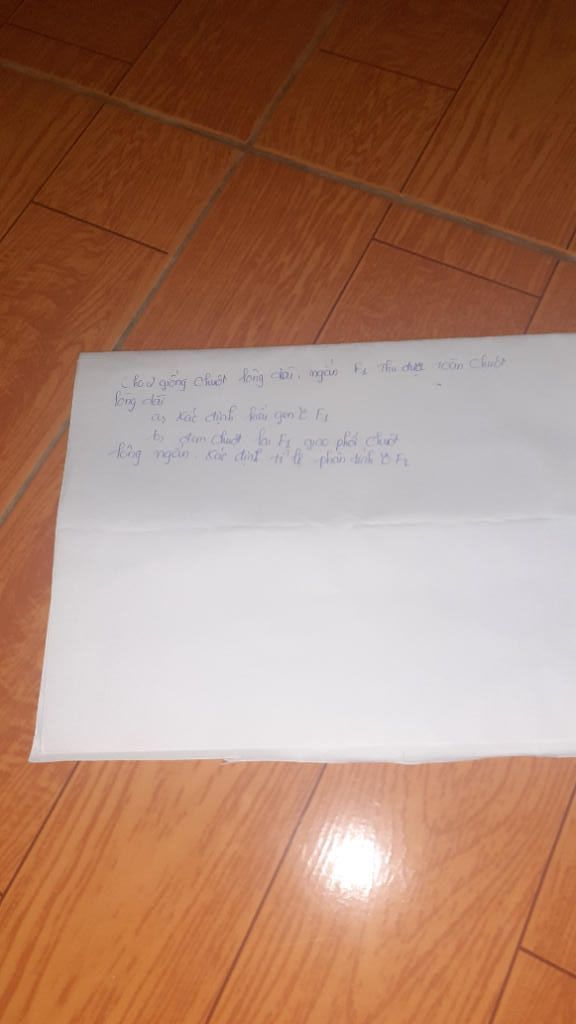 Cho 2 giống chuột lông dài, ngắn F1 thu được toàn chuột
lông dài
a, xác định kiểu gen ở F1
b, đem chuột lai F1 giao phối chuột
lông ngắn. xác định tỉ lệ phân tính ở F2